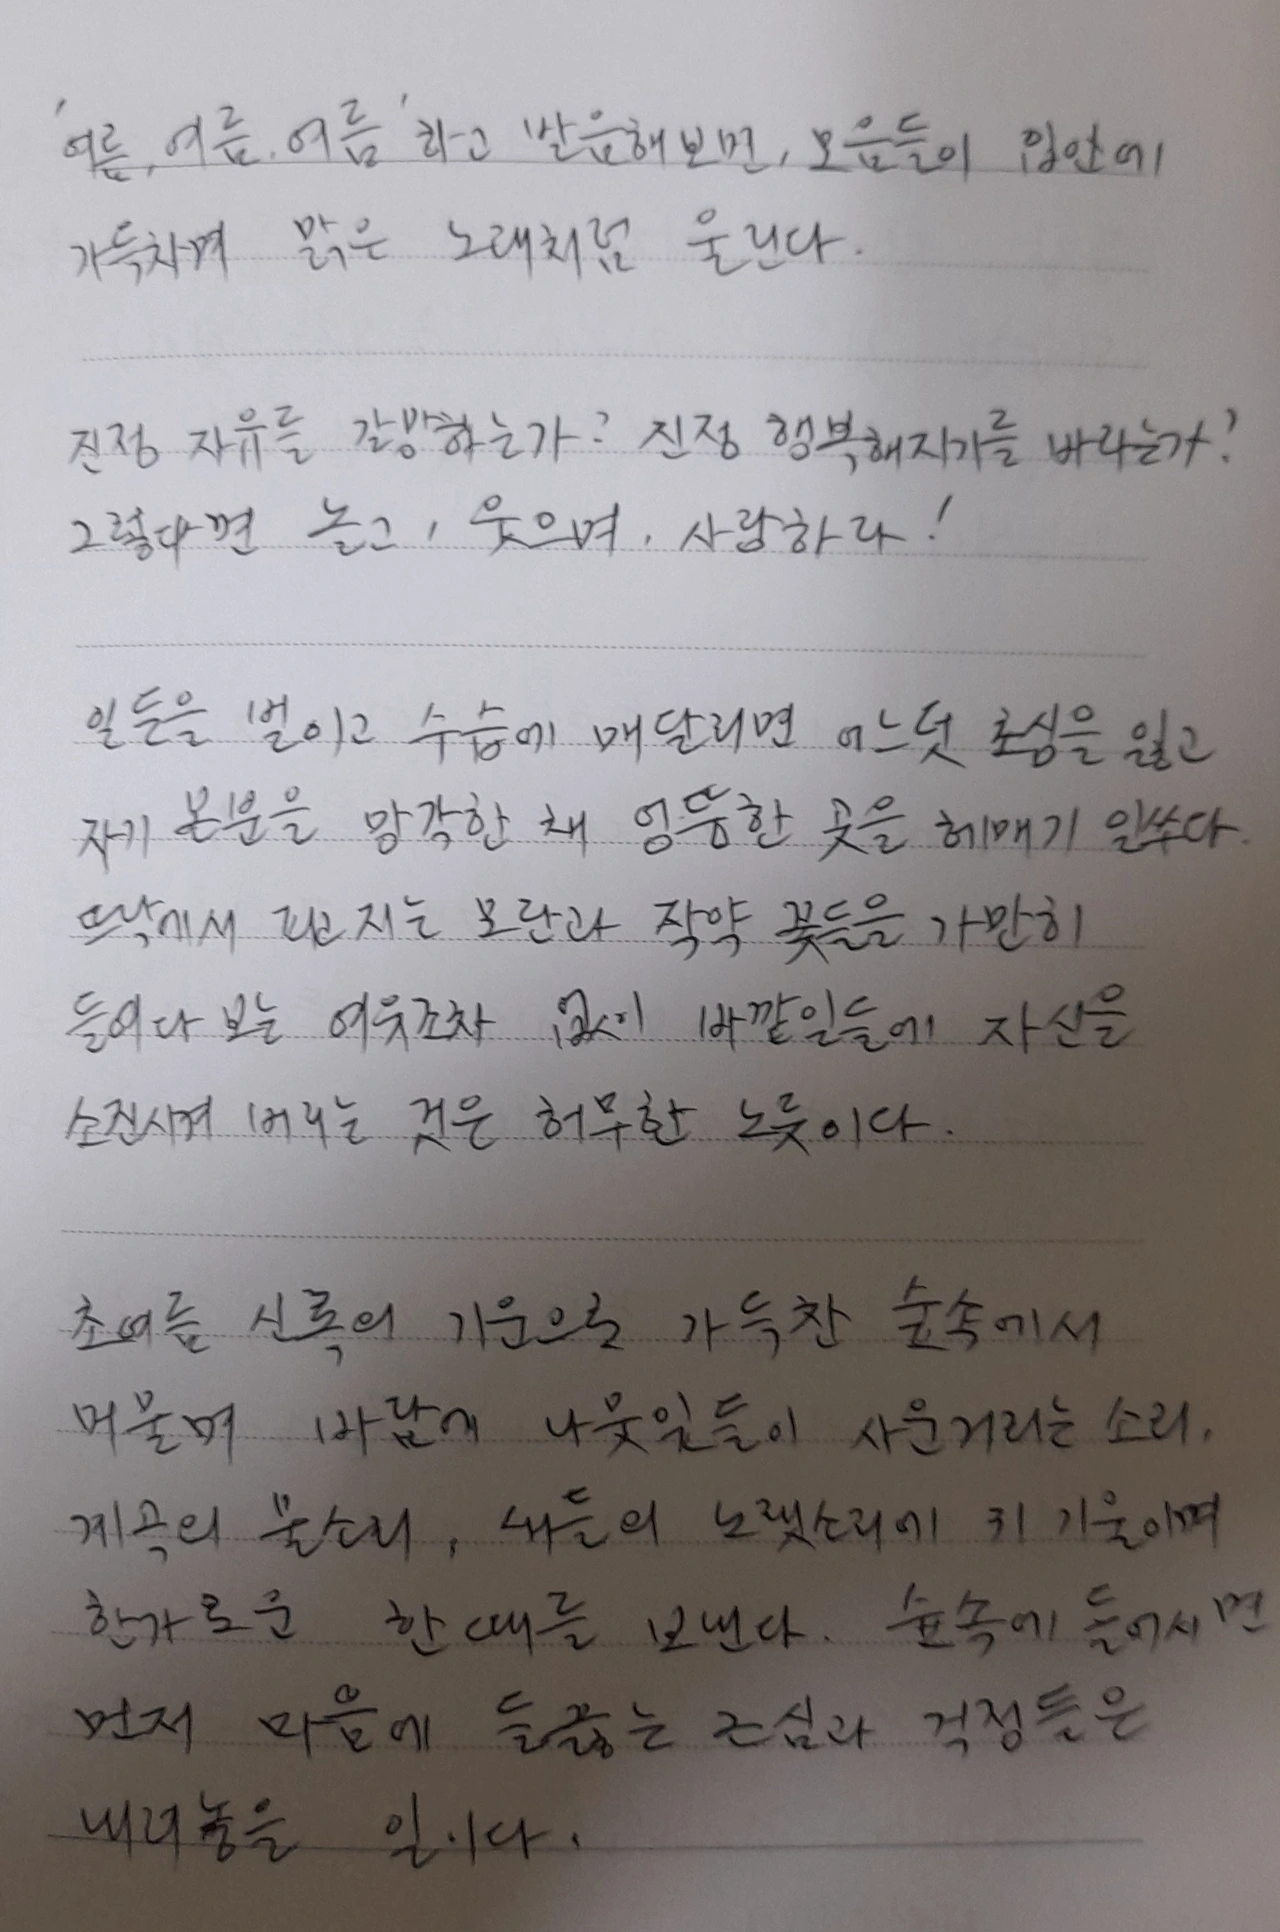 '여름, 여름, 여름' 하고 발음해보면, 모음들이 입안에
가득차며 맑은 노래처럼 울린다.
진정 자유를 갈망하는가? 진정 행복해지기를 바라는가?
그렇다면 놀고, 웃으며, 사랑하라!
일들을 벌이고 수습에 매달리면 어느덧 초심을 잃고
자기 본분을 망각한 채 엉뚱한 곳을 헤매기 일쑤다.
뜨락에서 피고 지는 모란과 작약 꽃들을 가만히
들여다 보는 여유조차 없이 바깥일들에 자신을
소진시켜 버리는 것은 허무한 노릇이다.
초여름 신록의 기운으로 가득찬 숲속에서
머물며 바람에 나뭇잎들이 사운거리는 소리,
계곡의 물소리, 새들의 노랫소리에 귀 기울이며
한가로운 한때를 보낸다. 숲속에 들어서면
먼저 마음에 들끓는 근심과 걱정들은
내려놓을 일이다.